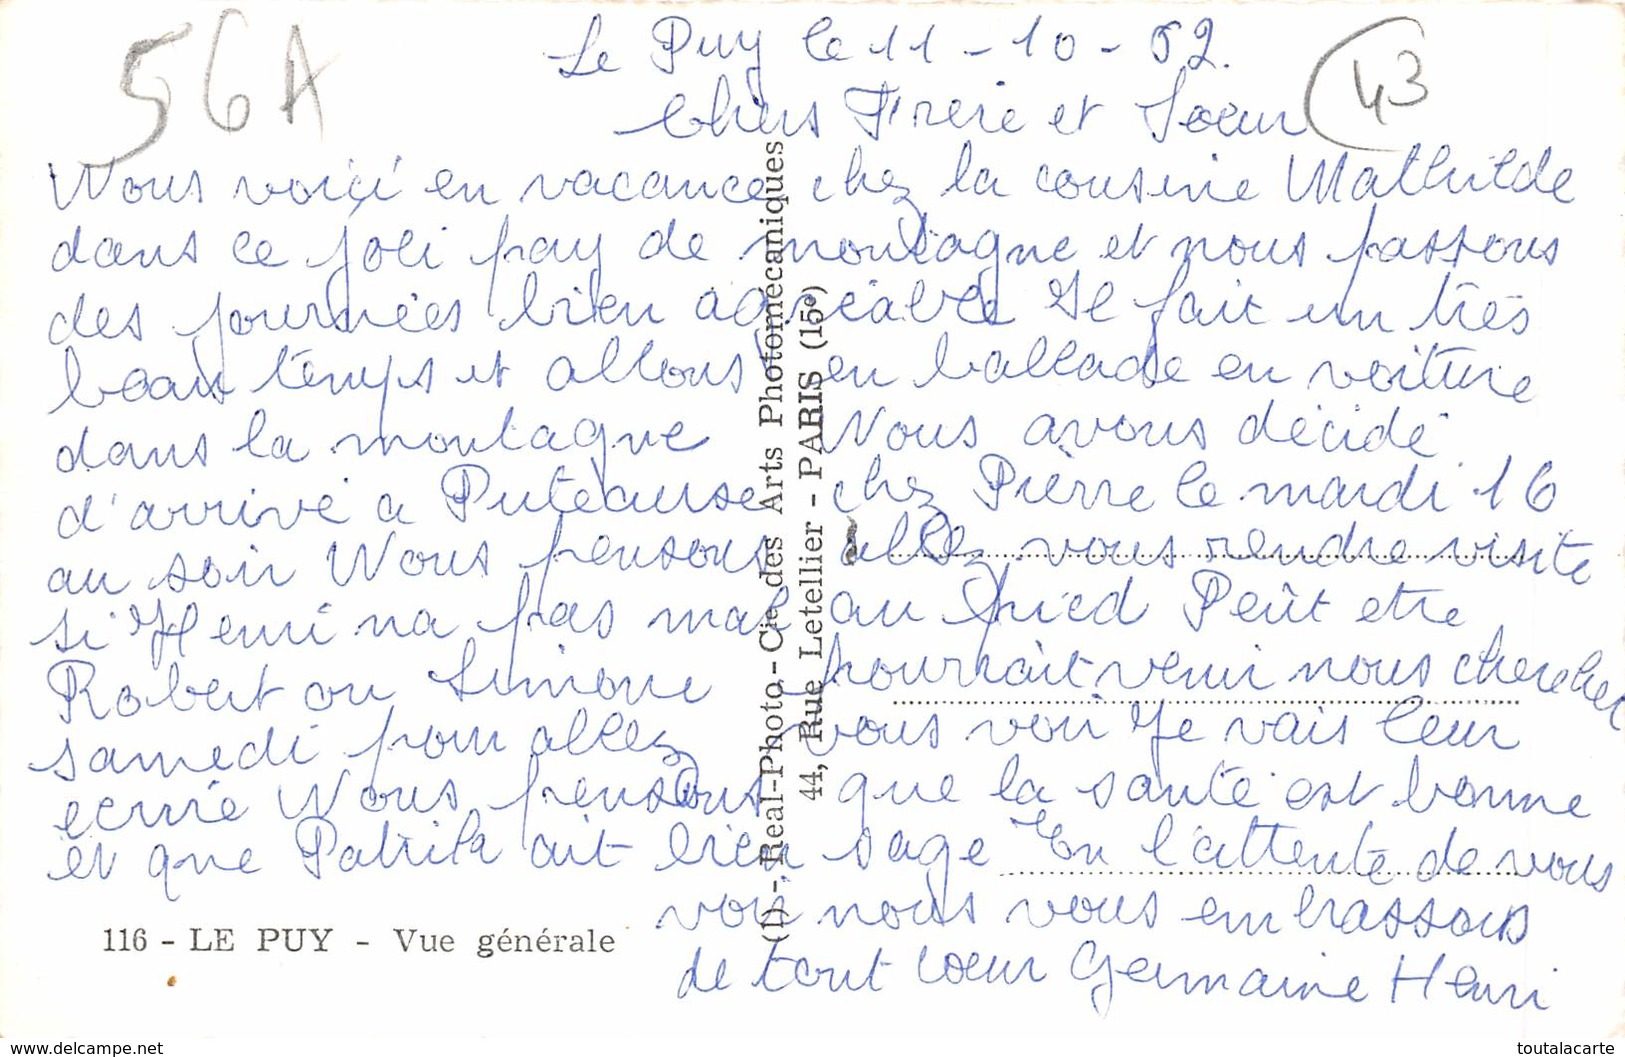 56A
Le Puy le 11-10-62.
43
Chers Frere et Soeur
Nous voiçi en vacance chez la cousine Mathilde
dans ce joli pay de montagne et nous passons
des journées bien agréable Il fait un très
beau temps et allons en ballade en voiture
dans la montagne Nous avons décidé
d'arrivé a Puteause chez Pièrre le mardi 16
au soir Nous pensons allez vous rendre visite
si Henri na pas mal au pied Peût etre
Robert ou Simone pourrait venir nous chercher
samedi pour allez vous voir Je vais leur
ecrire Nous pensons que la santé est bonne
et que Patrik ait bien sage En l'attente de vous
voir nous vous embrassons
de tout coeur Germaine Henri
116 - LE PUY - Vue générale
(L) - Real-Photo - Cie des Arts Photomécaniques
44, Rue Letellier - PARIS (15e)
www.delcampe.net
toutalacarte